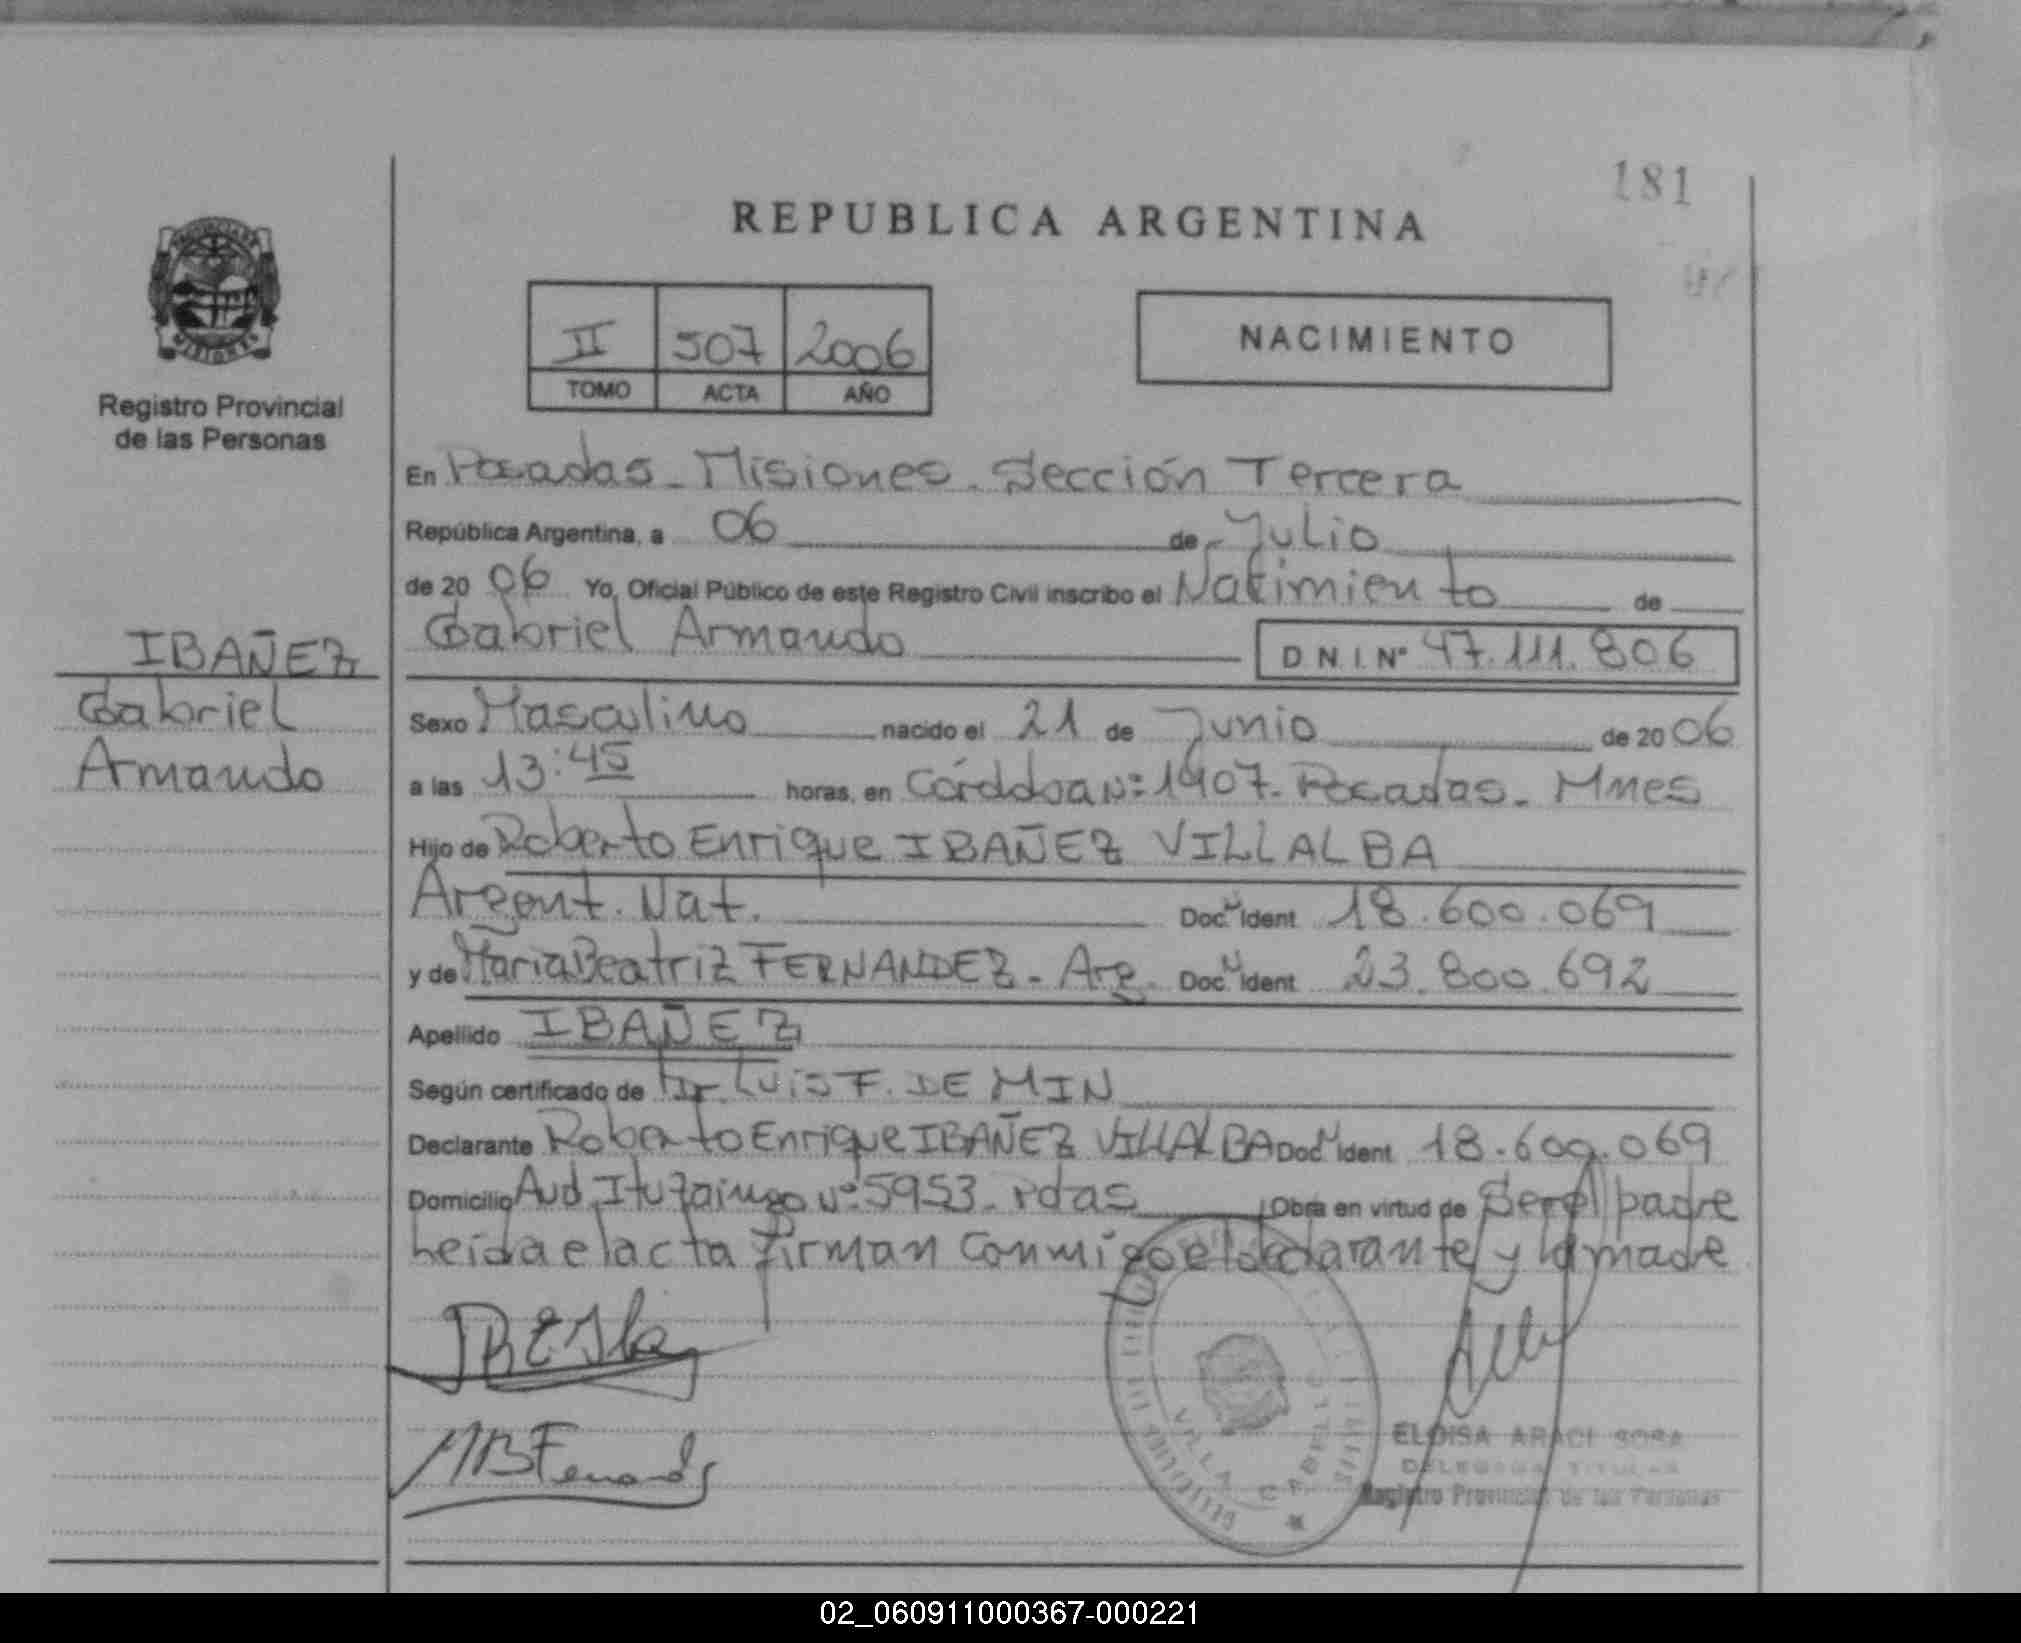 181
REPUBLICA ARGENTINA
II 507 2006
TOMO ACTA AÑO
NACIMIENTO
MISIONES
Registro Provincial
de las Personas
En Posadas - Misiones. Sección Tercera
República Argentina, a 06 de Julio
de 20 06 Yo, Oficial Público de este Registro Civil inscribo el Nacimiento de
Gabriel Armando D.N.I. Nº 47.111.806
IBAÑEZ
Gabriel
Armando
Sexo Masculino nacido el 21 de Junio de 20 06
a las 13:45 horas, en Córdoba Nº 1907. Posadas - Mnes
Hijo de Roberto Enrique IBAÑEZ VILLALBA
Argent. Nat. Doc. Ident 18.600.069
y de Maria Beatriz FERNANDEZ - Arg. Doc. Ident 23.800.692
Apellido IBAÑEZ
Según certificado de Dr. Luis F. DE MIN
Declarante Roberto Enrique IBAÑEZ VILLALBA Doc. Ident 18.600.069
Domicilio Avd. Ituzaingo Nº 5953 - Pdas Obra en virtud de Ser el padre
Leida el acta firman conmigo el declarante y la madre
VILLA CABELLO
ELOISA ARACI SOSA
DELEGADA TITULAR
Registro Provincial de las Personas
02_060911000367-000221